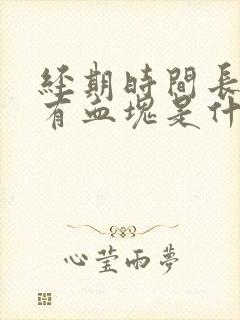 經期時間長
有血塊是什
心莹雨夢